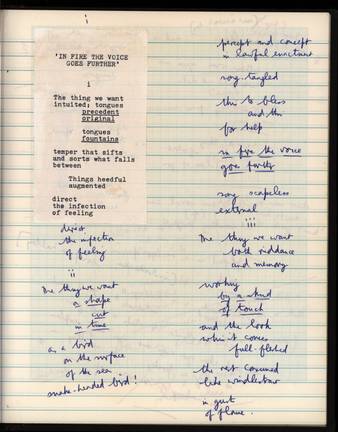 i
'IN FIRE THE VOICE
GOES FURTHER'
i
The thing we want
intuited; tongues
precedent
original
tongues
fountains
temper that sifts
and sorts what falls
between
Things heedful
augmented
direct
the infection
of feeling
direct
the infection
of feeling
ii
The thing we want
a shape
cut
in time
as a bird
on the surface
of the sea
snake-headed bird!
percept and concept
in lawful enactment
song-tangled
this to bless
and this
for help
in fire the voice
goes further
song scapeless
external
iii
The thing we want
both riddance
and memory
working
by a kind
of touch
and the look
when it comes
full-fleshed
the rest consumed
like windlestraw
in gust
of flame.